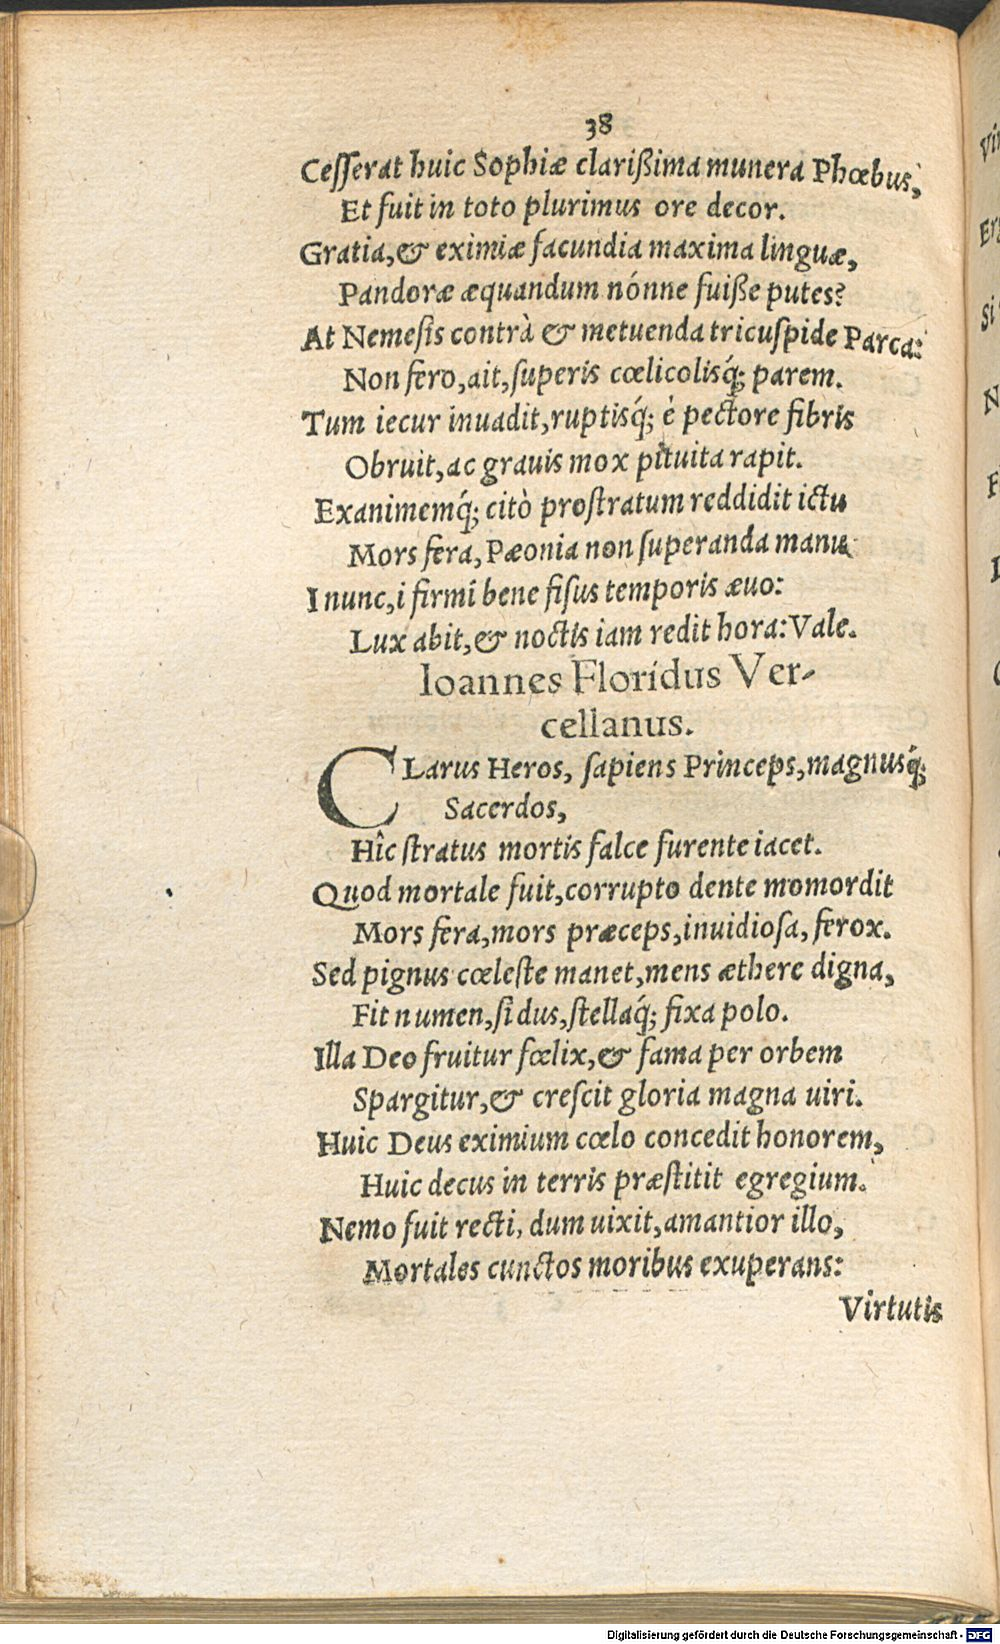 38
Cesserat huic Sophiæ clarißima munera Phœbus,
Et fuit in toto plurimus ore decor.
Gratia, & eximiæ facundia maxima linguæ,
Pandoræ æquandum nónne fuiße putes?
At Nemesis contrà & metuenda tricuspide Parca:
Non fero, ait, superis cœlicolisq́; parem.
Tum iecur inuadit, ruptisq́; è pectore fibris
Obruit, ac grauis mox pituita rapit.
Exanimemq́; citò prostratum reddidit ictu
Mors fera, Pæonia non superanda manu
I nunc, i firmi bene fisus temporis æuo:
Lux abit, & noctis iam redit hora: Vale.
Ioannes Floridus Ver-
cellanus.
CLarus Heros, sapiens Princeps, magnusq́;
Sacerdos,
Hîc stratus mortis falce furente iacet.
Quod mortale fuit, corrupto dente momordit
Mors fera, mors præceps, inuidiosa, ferox.
Sed pignus cœleste manet, mens æthere digna,
Fit numen, sidus, stellaq́; fixa polo.
Illa Deo fruitur fœlix, & fama per orbem
Spargitur, & crescit gloria magna uiri.
Huic Deus eximium cœlo concedit honorem,
Huic decus in terris præstitit egregium.
Nemo fuit recti, dum uixit, amantior illo,
Mortales cunctos moribus exuperans:
Virtutis
Digitalisierung gefördert durch die Deutsche Forschungsgemeinschaft - DFG